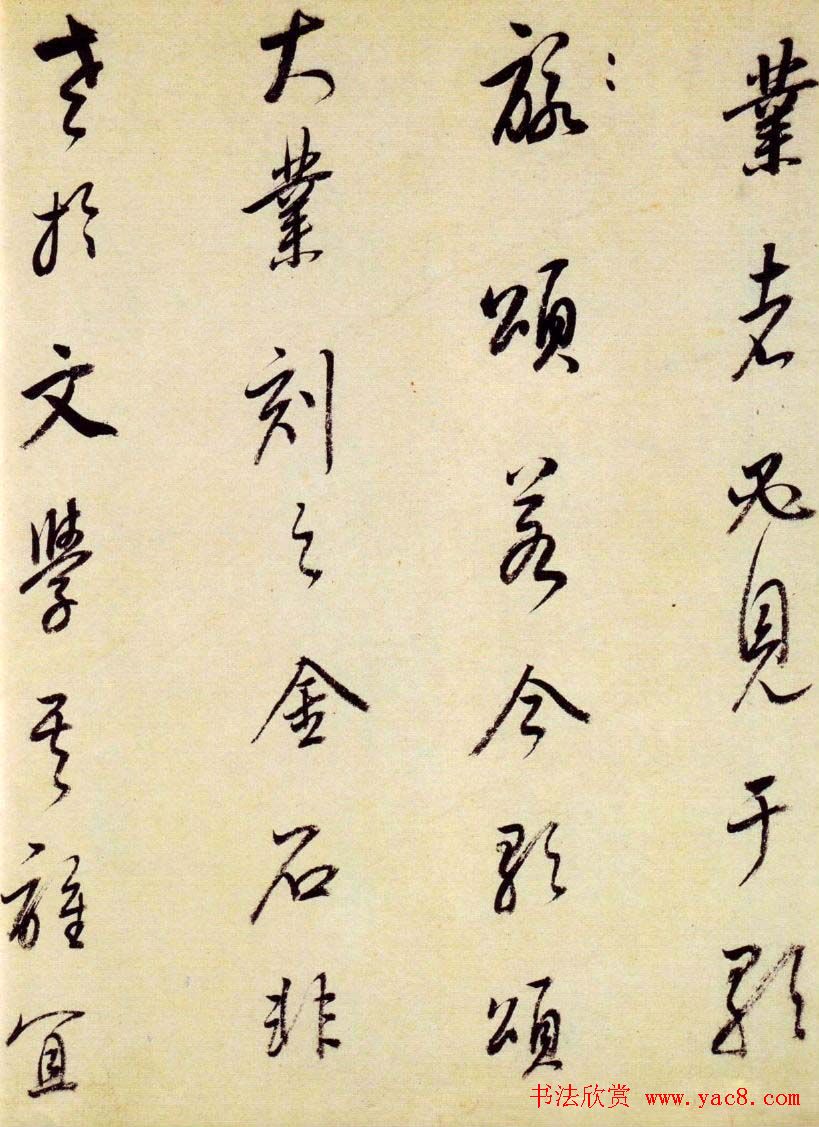 業者必見于歌
頌若今歌頌
大業刻之金石非
老於文學其誰宜
书法欣赏 www.yac8.com